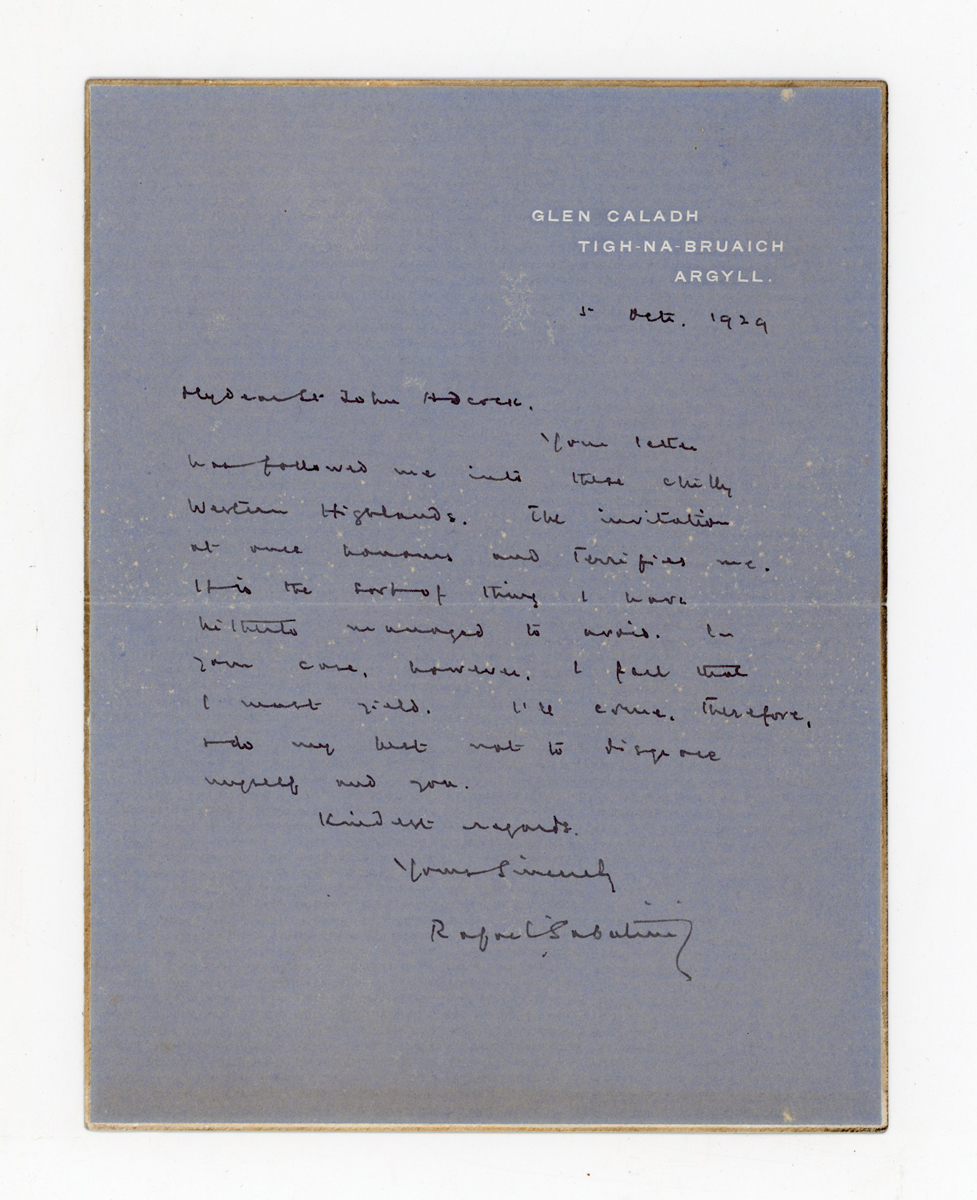 GLEN CALADH
TIGH-NA-BRUAICH
ARGYLL.
5 Oct. 1929
My dear St John Adcock,
Your letter
has followed me into these chilly
Western Highlands. The invitation
at once honours and terrifies me.
It is the sort of thing I have
hitherto managed to avoid. In
your case, however, I feel that
I must yield. I'll come, therefore,
& do my best not to disgrace
myself and you.
Kindest regards.
Yours Sincerely
Rafael Sabatini